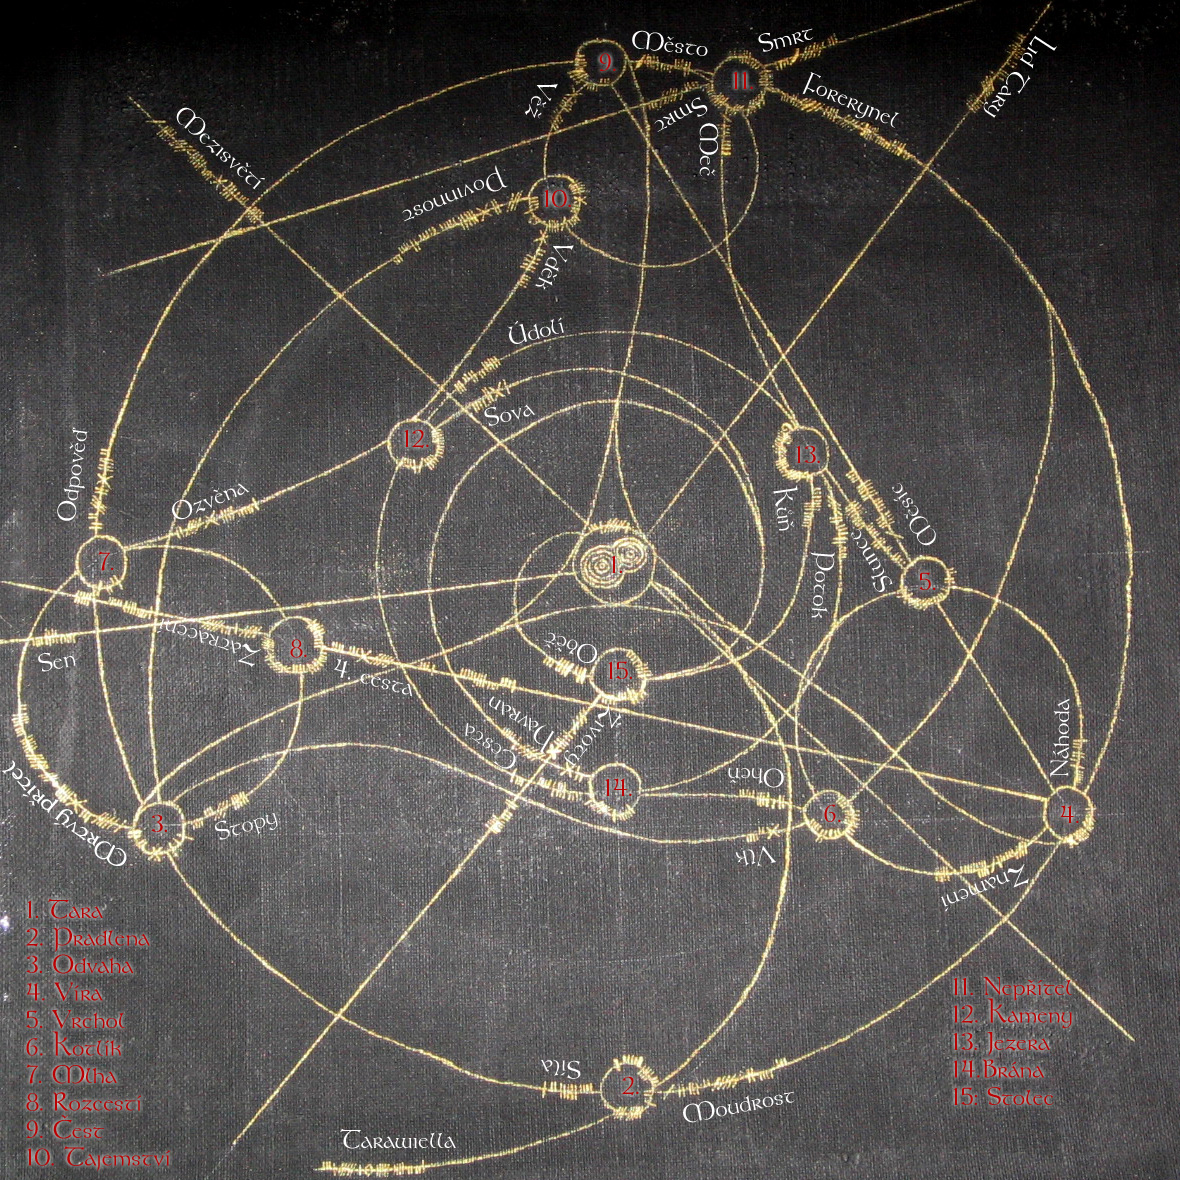 Město
Smrt
Lid Tary
9.
11.
Forerynel
Věž
Smrt
Meč
Mezisvětí
Povinnost
10.
Vděk
Údolí
Sova
12.
13.
Odpověď
Ozvěna
Kůň
Měsíc
Slunce
Potok
7.
1.
5.
Zatracení
Sen
8.
4. cesta
Oběť
15.
Havran
Životy
Cesta
Náhoda
14.
Oheň
6.
4.
Vlk
Mrtvý přítel
3.
Stopy
Znamení
Síla
2.
Moudrost
Tarawiella
1. Tara
2. Pradlena
3. Odvaha
4. Víra
5. Vrchol
6. Kotlík
7. Mlha
8. Rozcestí
9. Čest
10. Tajemství
11. Nepřítel
12. Kameny
13. Jezera
14. Brána
15. Stolec